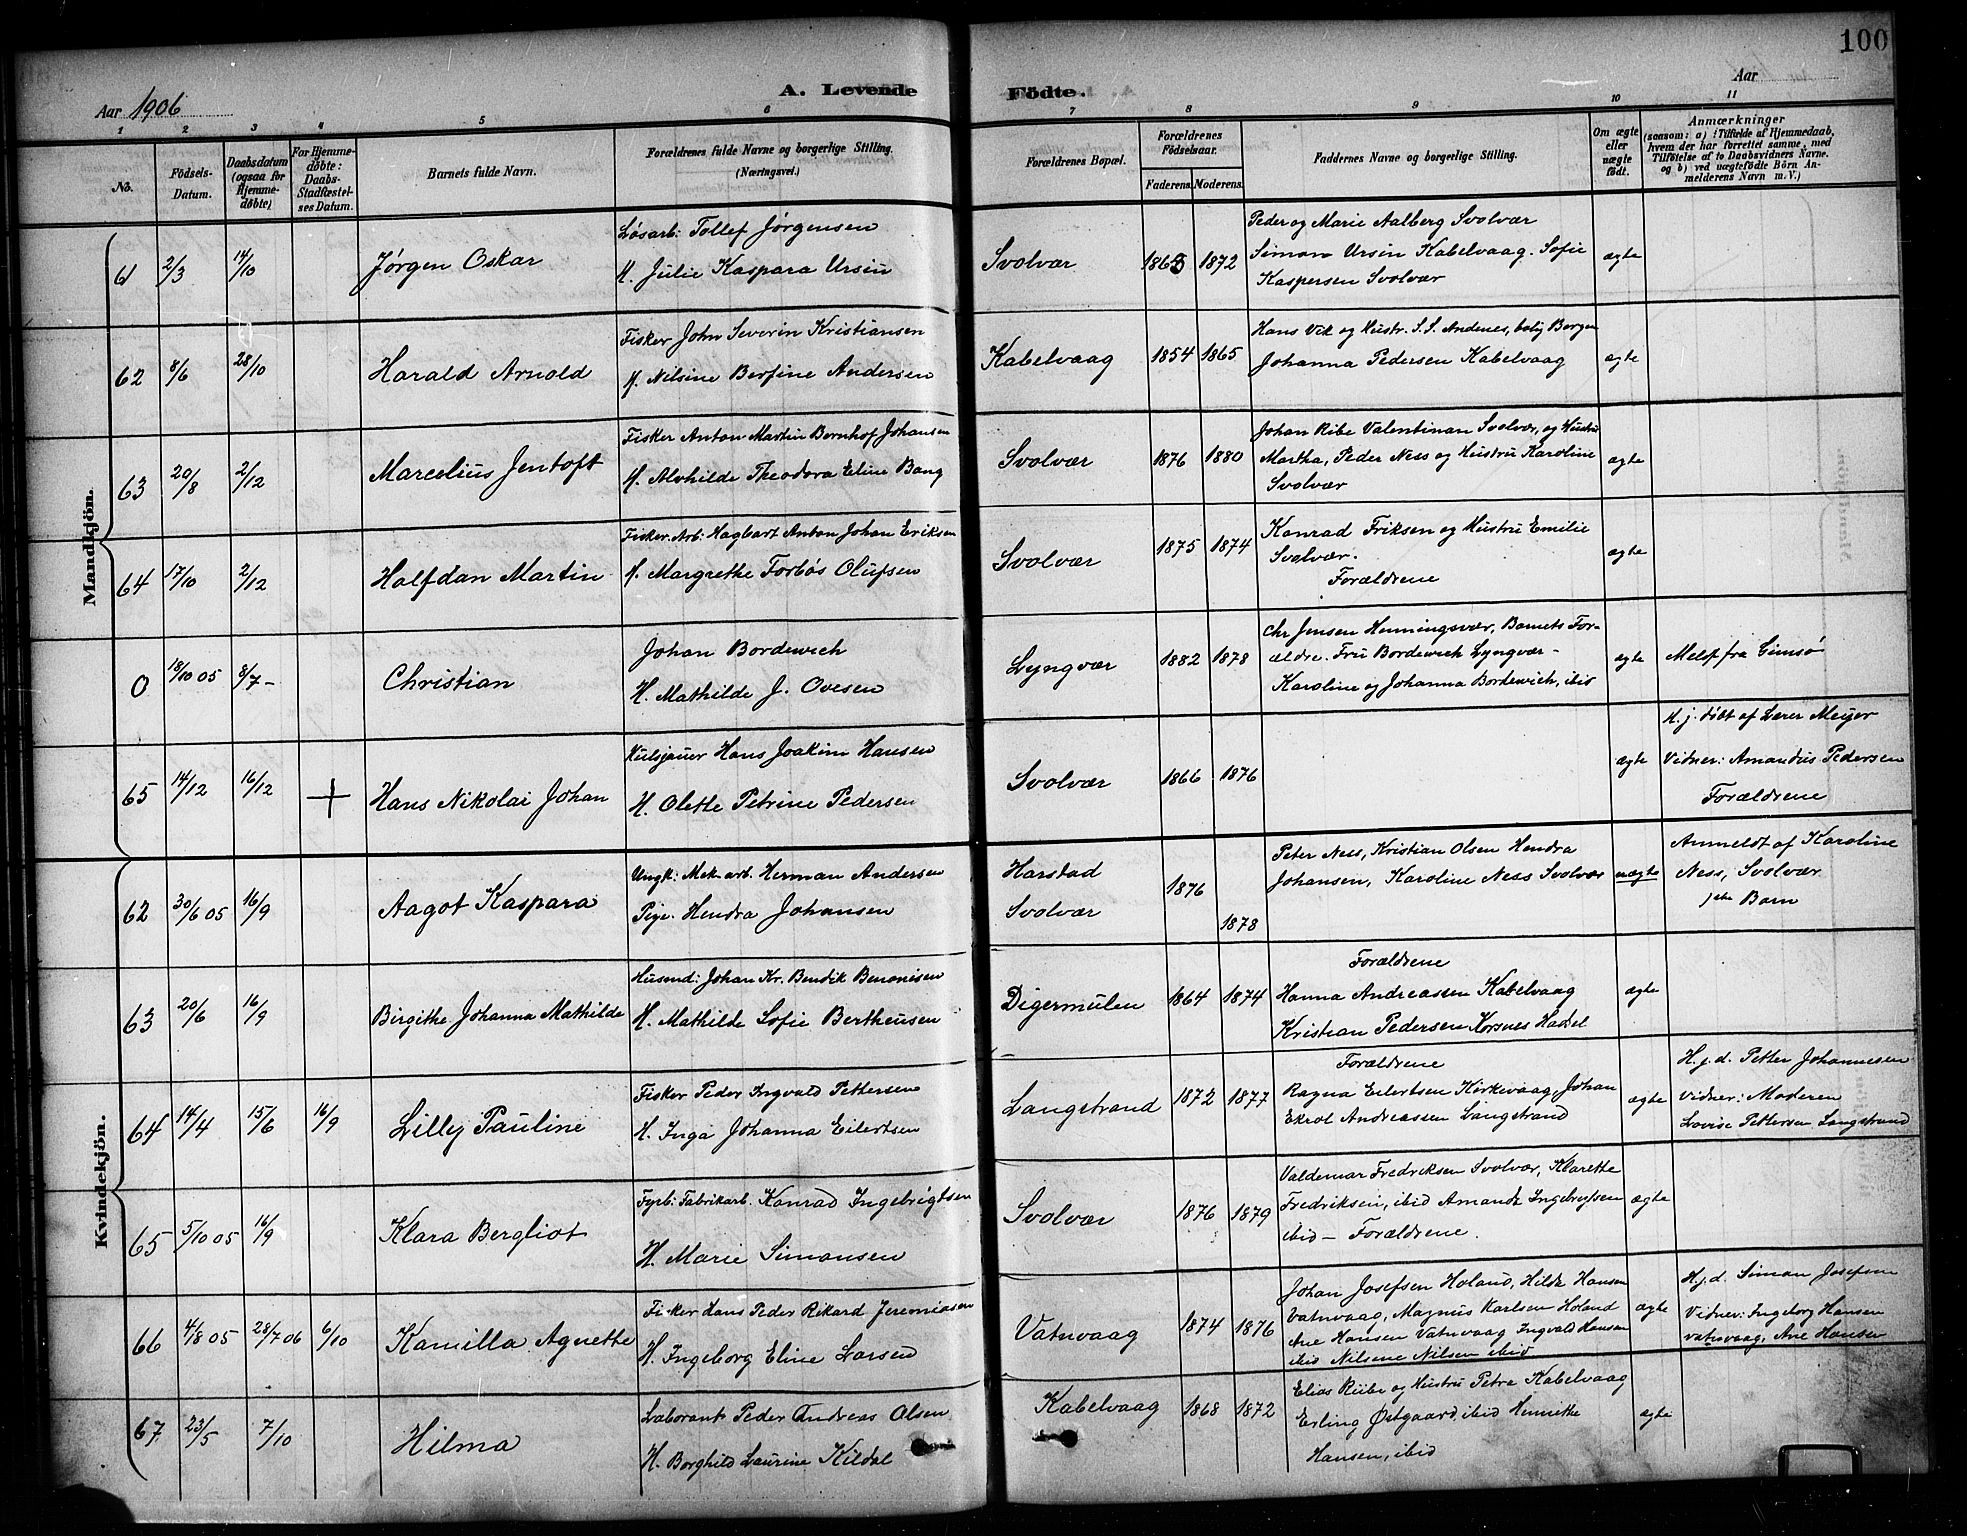 100
Aar 1906
A. Levende Födte.
Aar
1 2 3 4 5 6 7 8 9 10 11
No.
Födsels-
Datum.
Daabsdatum
(ogsaa for
Hjemme-
døbte)
For Hjemme-
døbte:
Daabs-
Stadfæstel-
ses Datum.
Barnets fulde Navn.
Forældrenes fulde Navne og borgerlige Stilling.
(Næringsvei.)
Forældrenes Bopæl.
Forældrenes
Födselsaar.
Faderens. Moderens.
Faddernes Navne og borgerlige Stilling.
Om ægte
eller
uægte
födt.
Anmærkninger
(saasom: a) i Tilfælde af Hjemmedaab,
hvem der har forrettet samme, med
Tilføielse af to Daabsvidners Navne.
og b) ved uægtefödte Börn An-
melderens Navn m.V.)
Mandkjön.
61 2/3 14/10 Jørgen Oskar
Løsarb: Tollef Jørgensen
H. Julie Kaspara Ursin
Svolvær 1863 1872
Peder og Marie Aalberg Svolvær
Simon Ursin Kabelvaag. Sofie
Kaspersen Svolvær
ægte
62 8/6 28/10 Harald Arnold
Fisker John Severin Kristiansen
H. Nilsine Berfine Andersen
Kabelvaag 1854 1865
Hans Vik og Hustr. S. S. Andenes, bolig Borgen
Johanna Pedersen Kabelvaag
ægte
63 20/8 2/12 Marcelius Jentoft
Fisker Anton Martin Bernhof Johansen
H. Alvhilde Theodora Eline Bang
Svolvær 1876 1880
Johan Ribe Valentinan Svolvær, og Hustru
Martha, Peder Ness og Hustru Karoline
Svolvær
ægte
64 17/10 2/12 Halfdan Martin
Fisker. Arb: Hagbart Anton Johan Eriksen
H. Margrethe Torbøs Olufsen
Svolvær 1875 1874
Konrad Eriksen og Hustru Emilie
Svolvær.
Forældrene
ægte
0 18/10 05 8/7 - Christian
Johan Bordewich
H. Mathilde J. Ovesen
Lyngvær 1882 1878
Chr Jensen Henningsvær, Barnets For-
ældre. Fru Bordewich Lyngvær -
Karoline og Johanna Bordewich, ibid
ægte
Meldt fra Gimsø
65 14/12 16/12 + Hans Nikolai Johan
Kulsjauer Hans Joakim Hansen
H. Olette Petrine Pedersen
Svolvær 1866 1876
ægte
H. j. døbt af Lærer Meyer
Vidner: Amandus Pedersen
Forældrene
Kvindekjön.
62 30/6 05 16/9 Aagot Kaspara
Ungk: Mek. arb. Herman Andersen
Pige. Hendra Johansen
Harstad
Svolvær
1876
1878
Peter Ness, Kristian Olsen Hendra
Johansen, Karoline Ness Svolvær
uægte
Anmeldt af Karoline
Ness, Svolvær
1ste Barn
63 20/6 16/9 Birgithe Johanna Mathilde
Husend: Johan Kr. Bendik Benonisen
H. Mathilde Sofie Bertheusen
Digermulen 1864 1874
Forældrene
Hanna Andreassen Kabelvaag
Kristian Pedersen Korsnes Hadsel
ægte
64 14/4 15/6 16/9 Lilly Pauline
Fisker Peder Ingvald Pettersen
H. Inga Johanna Eilertsen
Langstrand 1872 1877
Forældrene
Ragna Eilertsen Kirkevaag, Johan
Ekrol Andreassen Langstrand
ægte
H. j. d. Petter Johannesen
Vidner: Moderen
Lovise Pettersen Langstrand
65 5/10 05 16/9 Klara Bergliot
Fyrb: Fabrikarb. Konrad Ingebrigtsen
H. Marie Simonsen
Svolvær 1876 1879
Valdemar Fredriksen Svolvær, Klarethe
Fredriksen, ibid Amanda Ingebrigtsen
ibid - Forældrene.
ægte
66 4/8 05 28/7 06 6/10 Kamilla Agnethe
Fisker Hans Peder Rikard Jeremiasen
H. Ingeborg Eline Larsen
Vatnvaag 1874 1876
Johan Josefsen Holand, Hilda Hansen
Vatnvaag, Magnus Karlsen Holand
Ane Hansen Vatnvaag Ingvald Hansen
ibid Nilsene Nilsen ibid
ægte
H. j. d. Simon Josefsen
Vidner: Ingeborg Hansen
Vatnvaag, Ane Hansen
67 23/5 7/10 Hilma
Laborant Peder Andreas Olsen
H. Borghild Laurine Kildal
Kabelvaag 1868 1872
Elias Riibe og Hustru Petra Kabelvaag
Erling Østgaard, ibid Henrikke
Hansen, ibid
ægte